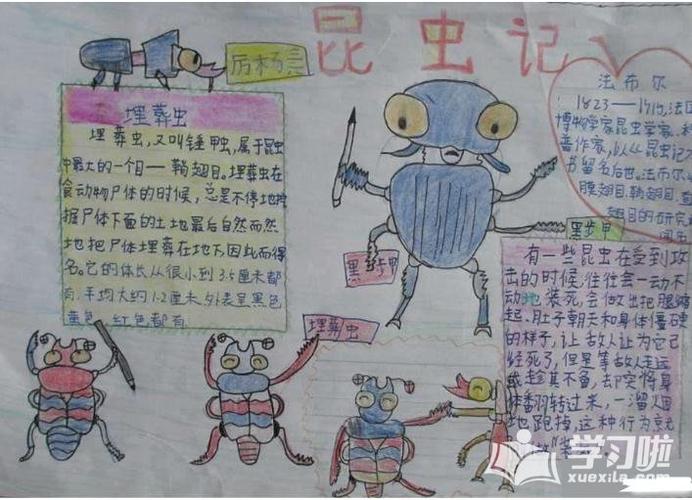 昆虫记
厉杨言
埋葬虫
埋葬虫,又叫锤甲虫,属于昆虫
中最大的一个目——鞘翅目。埋葬虫在
食动物尸体的时候,总是不停地挖
掘尸体下面的土地最后自然而然
地把尸体埋葬在地下,因此而得
名。它的体长从很小到3.5厘米都
有,平均大约1.2厘米,外表呈黑色
黄色、红色都有
法布尔
1823——1915,法国
博物学家昆虫学家,科
普作家,以《昆虫记》
书留名后世。法布尔
膜翅目,鞘翅目,直
翅目的研究
闻名
黑步甲
黑步甲
埋葬虫
有一些昆虫在受到攻
击的时候,往往会一动不
动地装死,会做出把腿蜷
起,肚子朝天和身体僵硬
的样子,让敌人让为它已
经死了,但是等敌人走远
或趁其不备,却突将身
体翻转过来,一溜烟
地跑掉,这种行为就
学习啦
www.xuexila.com